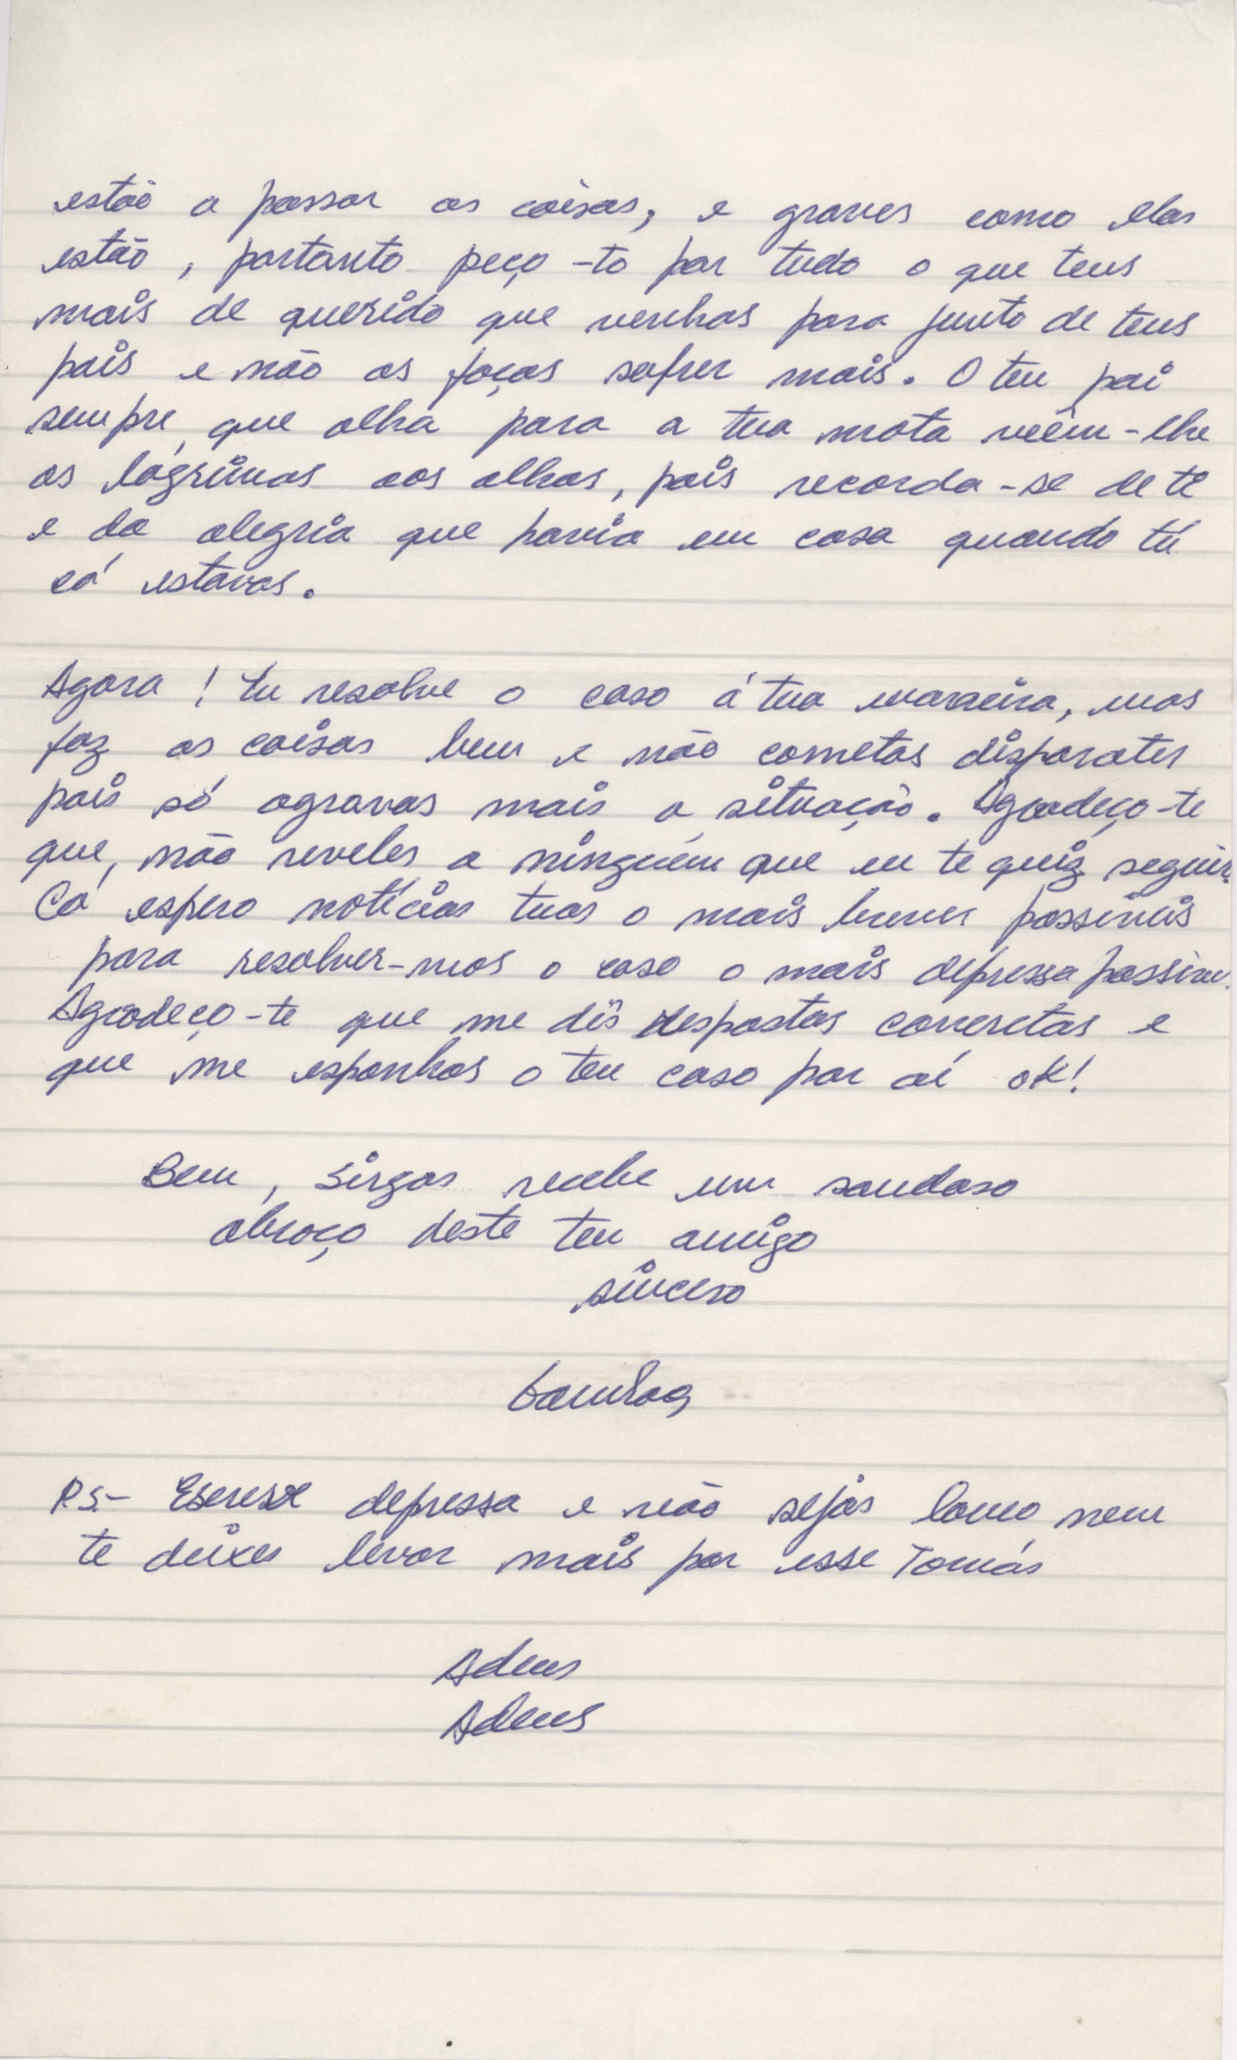 estão a passar as coisas, e graves como elas
estão, portanto peço-to por tudo o que tens
mais de querido que venhas para junto de teus
pais e não os faças sofrer mais. O teu pai
sempre, que olha para a tua mota vêem-lhe
as lágrimas aos olhos, pois recorda-se de ti
e da alegria que havia em casa quando tú
cá estavas.
Agora ! tu resolve o caso á tua maneira, mas
faz as coisas bem e não cometas disparates
pois só agravas mais a situação. Agradeço-te
que, não reveles a ninguém que eu te quiz seguir.
Cá espero notícias tuas o mais breves possiveis
para resolver-mos o caso o mais depressa possivel.
Agradeço-te que me dês respostas concretas e
que me esponhas o teu caso por aí ok!
Bem, Sirgas recebe um saudoso
abraço deste teu amigo
sincero
P.S.- Escreve depressa e não sejas louco, nem
te deixes levar mais por esse Tomás
Adeus
Adeus